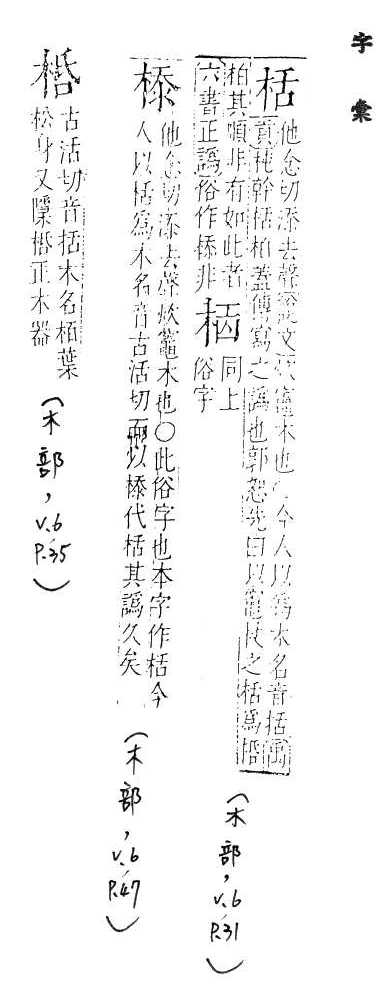 字彙
栝
他念切添去聲說文炊竈木也〇今人以爲木名音括禹
貢杶幹栝柏蓋傳寫之譌也郭恕先曰以竈杖之栝爲桰
柏其順非有如此者
六書正譌俗作㮇非
同上
俗字
(木部, v.6, P.31)
㮇
他念切添去聲炊竈木也〇此俗字也本字作栝今
人以栝爲木名音古活切而以㮇代栝其譌久矣
(木部, v.6, P.47)
桰
古活切音括木名栢葉
松身又檃桰正木器
(木部, v.6, P.35)